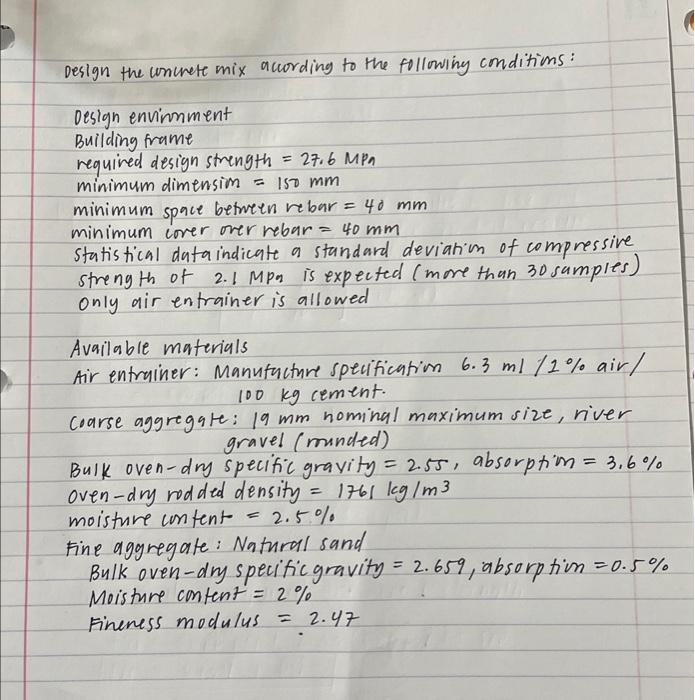 Design the concrete mix according to the following conditions:
Design environment
Building frame
required design strength = 27.6 MPa
minimum dimension = 150 mm
minimum space between rebar = 40 mm
minimum cover over rebar = 40 mm
Statistical data indicate a standard deviation of compressive
strength of 2.1 MPa is expected (more than 30 samples)
only air entrainer is allowed
Available materials
Air entrainer: Manufacture specification 6.3 ml /1% air/
100 kg cement.
Coarse aggregate: 19 mm nominal maximum size, river
gravel (rounded)
Bulk oven-dry specific gravity = 2.55, absorption = 3.6%
Oven-dry rodded density = 1761 kg/m3
moisture content = 2.5%
Fine aggregate: Natural sand
Bulk oven-dry specific gravity = 2.659, absorption = 0.5%
Moisture content = 2%
Fineness modulus = 2.47